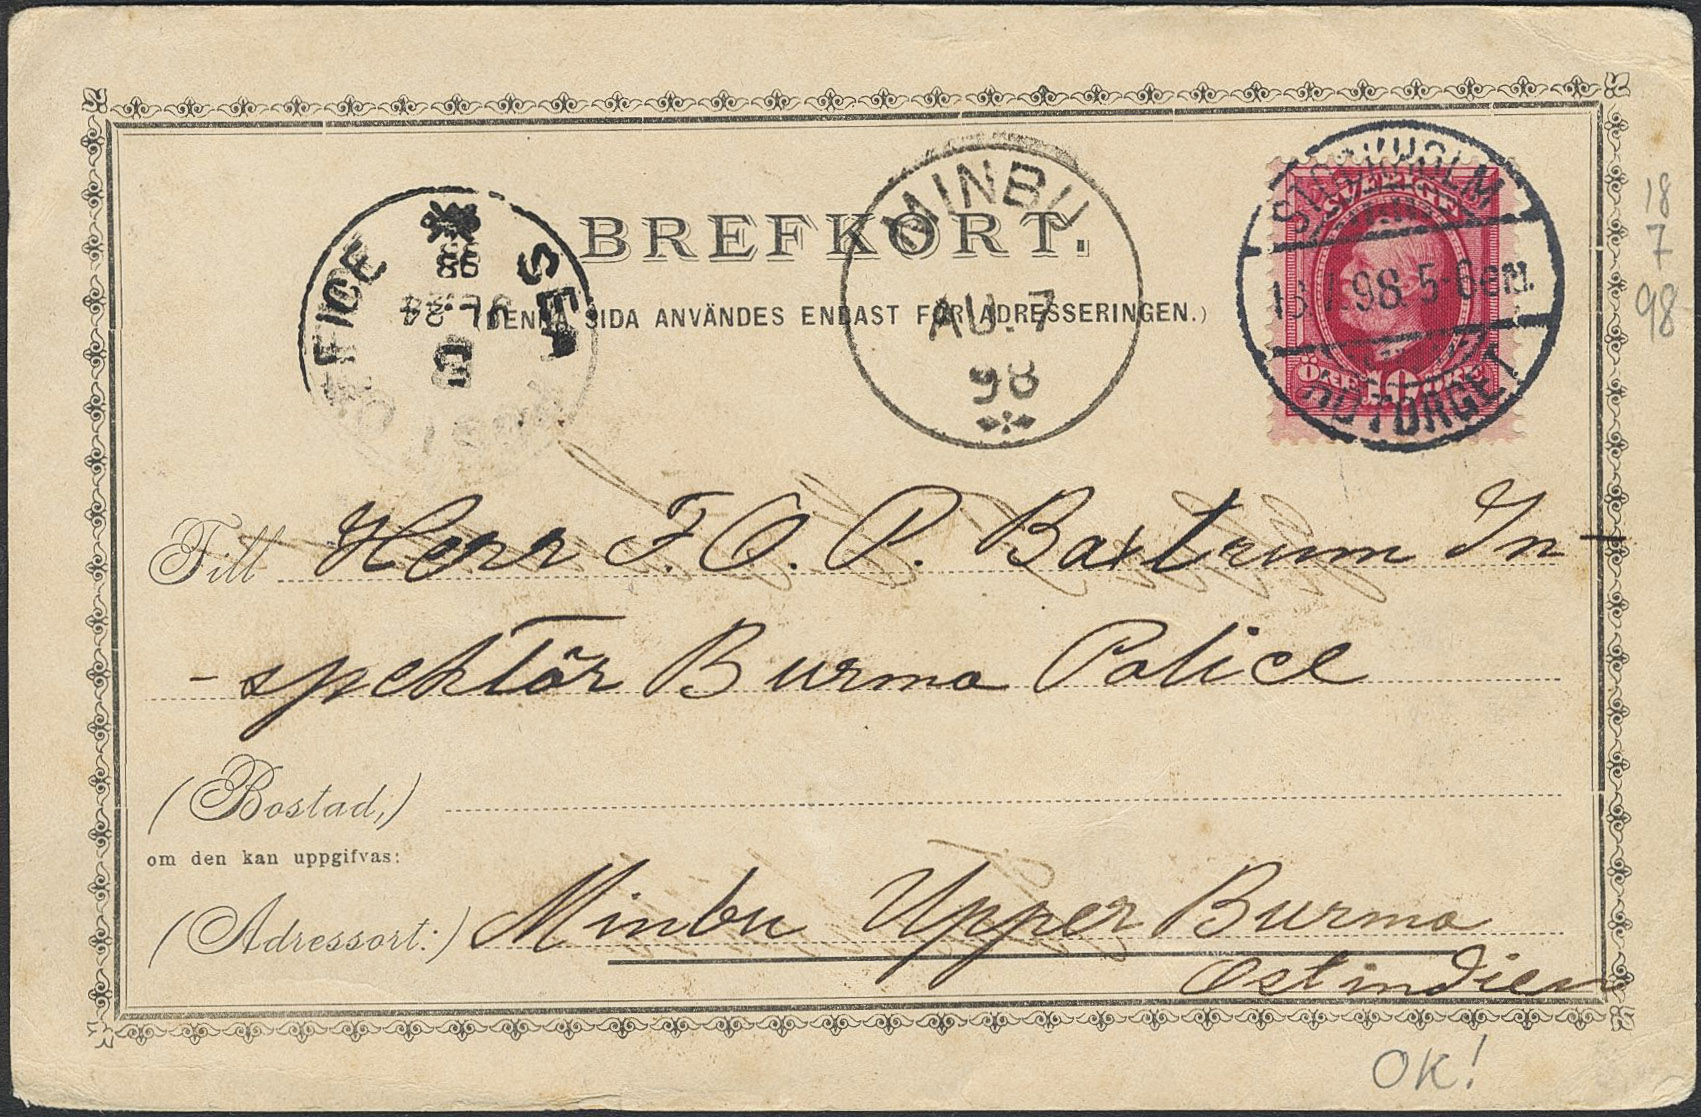 BREFKORT.
(DENNA SIDA ANVÄNDES ENDAST FÖR ADRESSERINGEN.)
SEA
OFFICE
C
98
MINBU
AU. 7
98
STOCKHOLM
18.7.98. 5-6 em.
ÖDTORGET
ÖRE 10 ÖRE
18
7
98
Till Herr F. O. P. Baxtrum In-
-spektör Burma Police
(Bostad,)
om den kan uppgifvas:
(Adressort:) Minbu Upper Burma
Ostindien
OK!